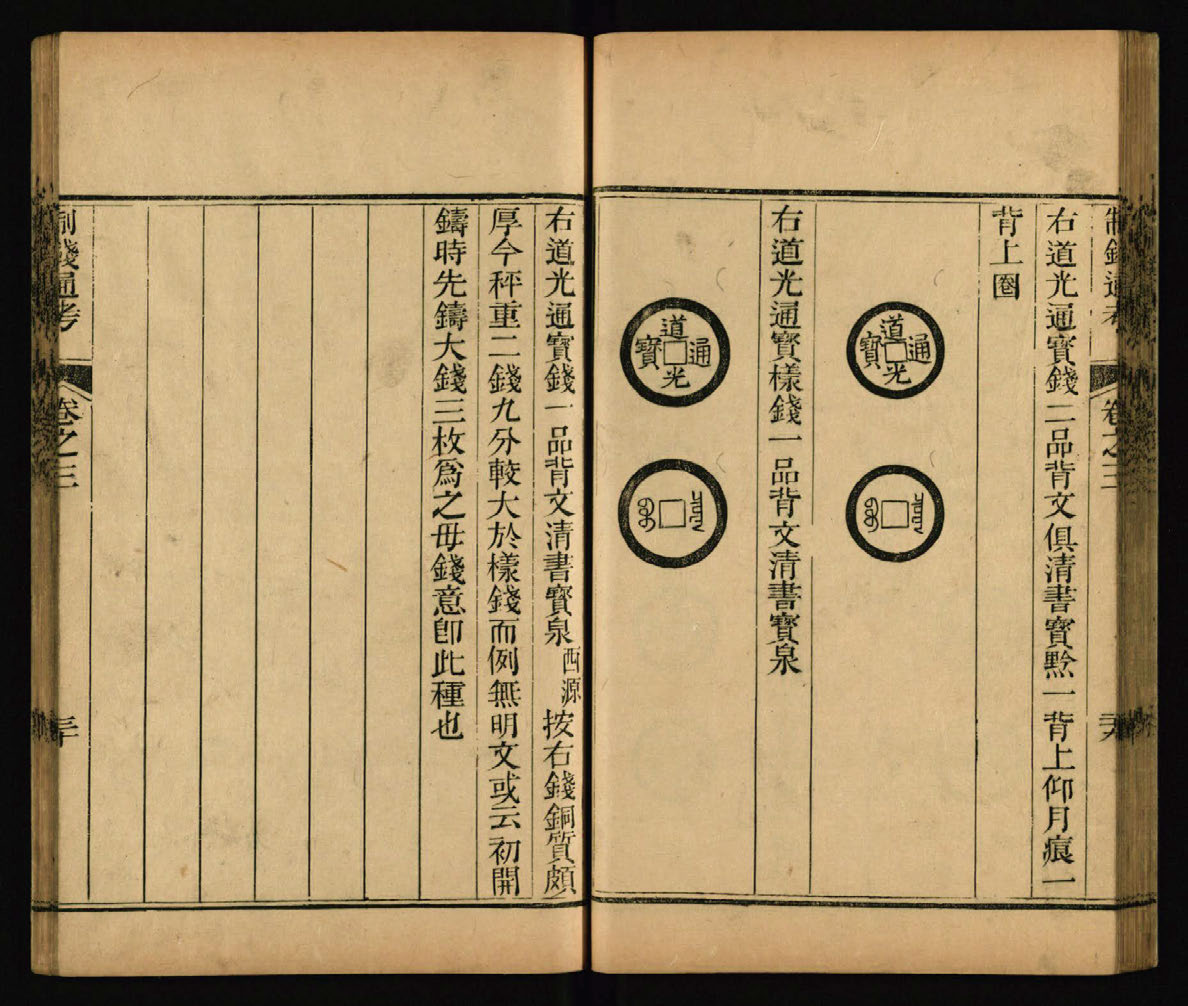 制錢通考
卷之三
右道光通寶錢二品背文俱清書寶黔一背上仰月痕一
背上圈
道光通寶
道光通寶
右道光通寶樣錢一品背文清書寶泉
右道光通寶錢一品背文清書寶泉西源按右錢銅質頗
厚今秤重二錢九分較大於樣錢而例無明文或云初開
鑄時先鑄大錢三枚爲之毋錢意卽此種也
制錢通考
卷之三
三十